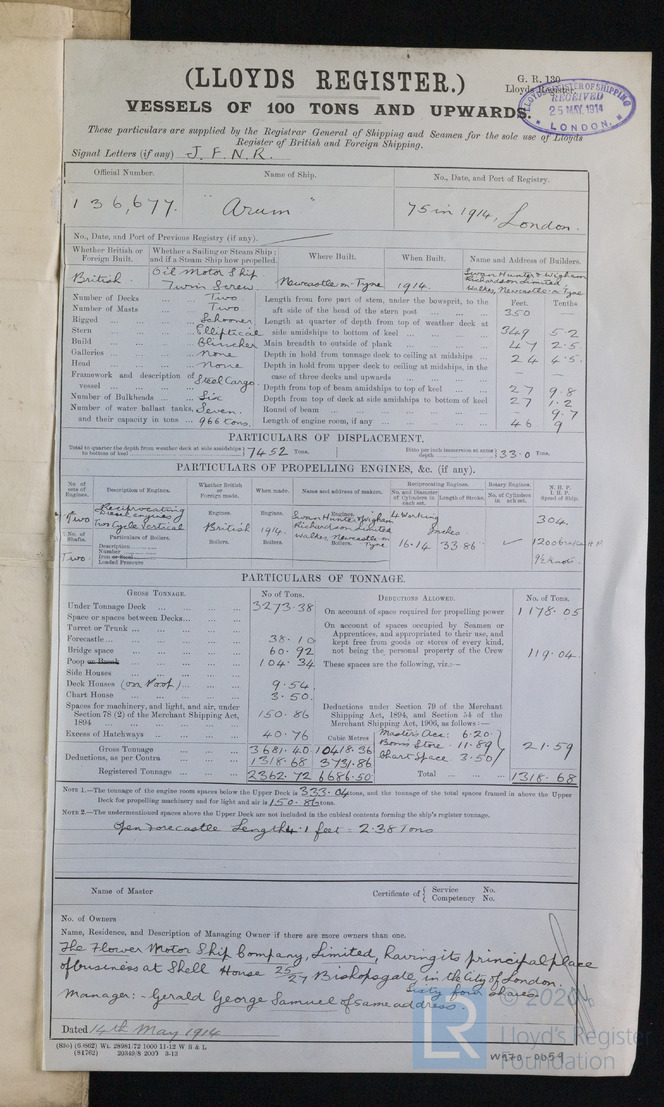 (LLOYDS REGISTER.)
G. R. 130
Lloyds Register
LLOYD'S REGISTER OF SHIPPING
RECEIVED
25 MAY. 1914
LONDON.
VESSELS OF 100 TONS AND UPWARDS.
These particulars are supplied by the Registrar General of Shipping and Seamen for the sole use of Lloyds
Register of British and Foreign Shipping.
Signal Letters (if any) J. F. N. R.
Official Number. Name of Ship. No., Date, and Port of Registry.
136,677. "Arum" 75 in 1914, London.
No., Date, and Port of Previous Registry (if any).
Whether British or Foreign Built. Whether a Sailing or Steam Ship; and if a Steam Ship how propelled. Where Built. When Built. Name and Address of Builders.
British. Oil Motor Ship Twin Screw. Newcastle on Tyne 1914. Swan Hunter & Wigham Richardson Limited Walker, Newcastle-on-Tyne
Feet. Tenths
Number of Decks Two
Number of Masts Two
Rigged Schooner
Stern Elliptical
Build Clincher
Galleries None
Head None
Framework and description of vessel Steel Cargo.
Number of Bulkheads Six
Number of water ballast tanks, Seven.
and their capacity in tons 966 tons.
Length from fore part of stem, under the bowsprit, to the aft side of the head of the stern post 350 —
Length at quarter of depth from top of weather deck at side amidships to bottom of keel 349 5.2
Main breadth to outside of plank 47 2.5
Depth in hold from tonnage deck to ceiling at midships 24 4.5
Depth in hold from upper deck to ceiling at midships, in the case of three decks and upwards — —
Depth from top of beam amidships to top of keel 27 9.8
Depth from top of deck at side amidships to bottom of keel 27 1.2
Round of beam — 9.7
Length of engine room, if any 46 9
PARTICULARS OF DISPLACEMENT.
Total to quarter the depth from weather deck at side amidships to bottom of keel 7452 Tons. Ditto per inch immersion at same depth 33.0 Tons.
PARTICULARS OF PROPELLING ENGINES, &c. (if any).
No. of sets of Engines. Description of Engines. Whether British or Foreign made. When made. Name and address of makers. Reciprocating Engines. No. and Diameter of Cylinders in each set. Length of Stroke. Rotary Engines. No. of Cylinders in each set. N. H. P. I. H. P. Speed of Ship.
Two Reciprocating Diesel Engines Two Cycle Vertical
Engines. British Engines. 1914. Engines. Swan Hunter & Wigham Richardson Limited Walker, Newcastle on Tyne
4 Working Inches 16.14 33.86 304.
No. of Shafts. Two
Particulars of Boilers. Description Number Iron or Steel Loaded Pressure
Boilers. Boilers. Boilers.
1200 H.P.
9½ knots.
PARTICULARS OF TONNAGE.
GROSS TONNAGE. No of Tons. DEDUCTIONS ALLOWED. No. of Tons.
Under Tonnage Deck 3273.38
Space or spaces between Decks
Turret or Trunk
Forecastle 38.10
Bridge space 60.92
Poop or Break 104.34
Side Houses
Deck Houses (on Poop) 9.54
Chart House 3.50
Spaces for machinery, and light, and air, under Section 78 (2) of the Merchant Shipping Act, 1894 150.86
Excess of Hatchways 40.76 Cubic Metres
Gross Tonnage 3681.40 10418.36
Deductions, as per Contra 1318.68 3731.86
Registered Tonnage 2362.72 6686.50
On account of space required for propelling power 1178.05
On account of spaces occupied by Seamen or Apprentices, and appropriated to their use, and kept free from goods or stores of every kind, not being the personal property of the Crew 119.04
These spaces are the following, viz:—
Deductions under Section 79 of the Merchant Shipping Act, 1894, and Section 54 of the Merchant Shipping Act, 1906, as follows:—
Master's Acc: 6.20
Bosn's Store 11.89
Chart Space 3.50 21.59
Total 1318.68
NOTE 1.—The tonnage of the engine room spaces below the Upper Deck is 333.04 tons, and the tonnage of the total spaces framed in above the Upper
Deck for propelling machinery and for light and air is 150.86 tons.
NOTE 2.—The undermentioned spaces above the Upper Deck are not included in the cubical contents forming the ship's register tonnage.
Open Forecastle Length 4.1 feet = 2.38 Tons
Name of Master Certificate of Service No. Competency No.
No. of Owners
Name, Residence, and Description of Managing Owner if there are more owners than one.
The Flower Motor Ship Company, Limited, having its principal place
of business at Shell House 25/27 Bishopsgate, in the City of London.
Sixty four shares
Manager:- Gerald George Samuel of same address.
Dated 14th May 1914
(830) (6.862) Wt. 28981/72 1000 11-12 W B & L
(81762) 20349/8 2000 3-13
LR
© 2020
Lloyd's Register
Foundation
W970-0059